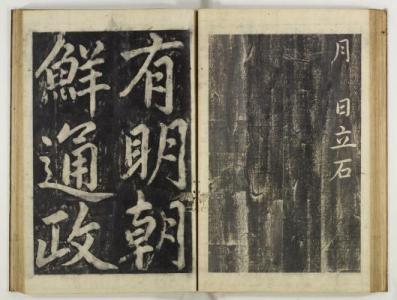 月 日立石
有明朝
鮮通政